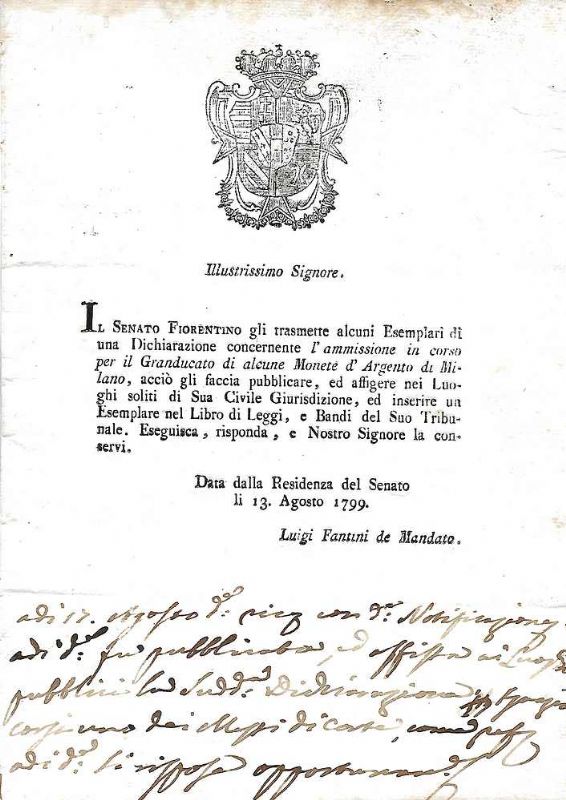 Illustrissimo Signore.
IL SENATO FIORENTINO gli trasmette alcuni Esemplari di
una Dichiarazione concernente l'ammissione in corso
per il Granducato di alcune Monete d'Argento di Mi-
lano, acciò gli faccia pubblicare, ed affigere nei Luo-
ghi soliti di Sua Civile Giurisdizione, ed inserire un
Esemplare nel Libro di Leggi, e Bandi del Suo Tribu-
nale. Eseguisca, risponda, e Nostro Signore la con-
servi.
Data dalla Residenza del Senato
li 13. Agosto 1799.
Luigi Fantini de Mandato.
adi 17. Agosto d.º con d.ª Notificazione
adi d.º fu pubblicata, ed affissa ai Luoghi
pubblici la Sudd.ª Dichiarazione
uno dei Messi di come
adi d.º si rispose